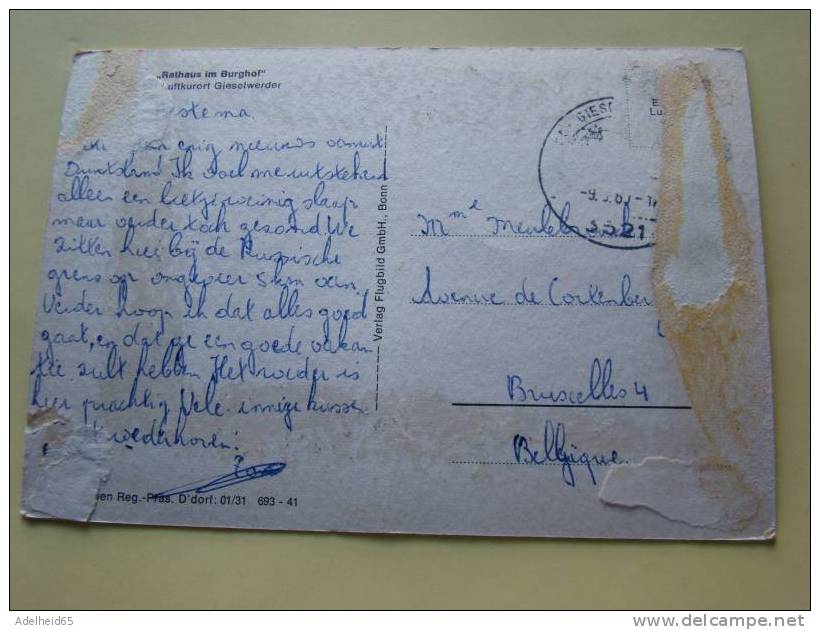 „Rathaus im Burghof“
Luftkurort Gieselwerder
nieuws vanuit
Duitsland Ik
alleen een beetje weinig slaap
maar verder toch gezond We
zitten hier bij de Russische
grens op ongeveer 5 km van.
Verder hoop ik dat alles goed
gaat, en dat ge een goede vakan
tie zult hebben Het weder is
hier prachtig Vele innige kussen
Reg.-Präs. D'dorf: 01/31 693 - 41
Verlag Flugbild GmbH., Bonn
3521
Mme
Avenue de Cortenber
Bruxelles 4
Belgique
Adelheid65
delcampe.net